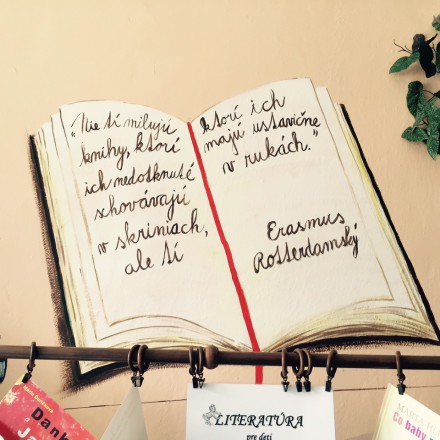 „Nie tí milujú
knihy, ktorí
ich nedotknuté
schovávajú
v skriniach,
ale tí
ktorí ich
majú ustavične
v rukách.”
Erasmus
Rotterdamský
LITERATÚRA
pre deti
Co baby